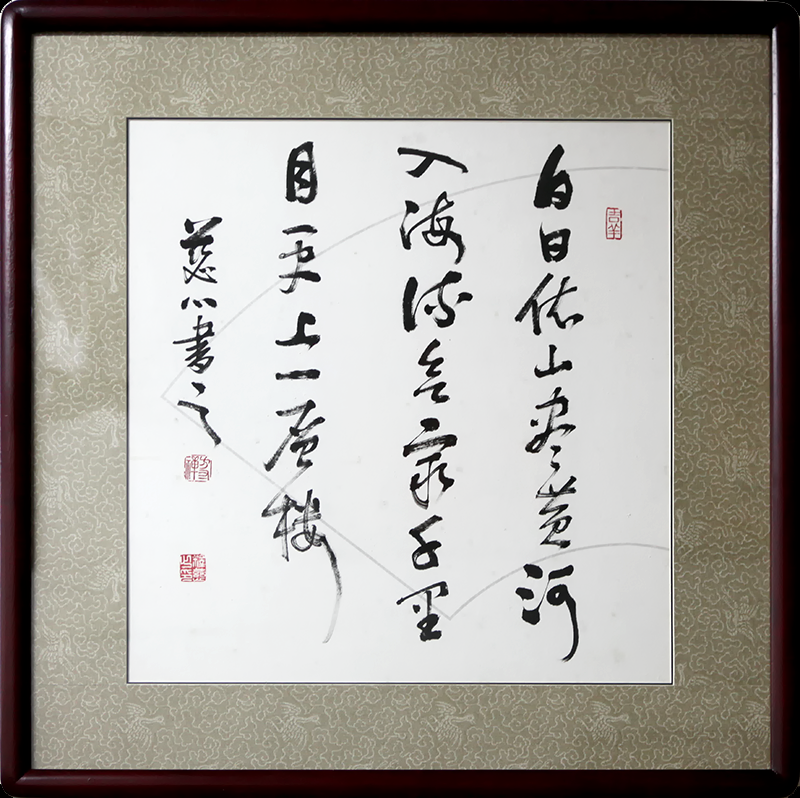 白日依山尽黄河
入海流欲窮千里
目更上一層楼
慈心書之
吉羊